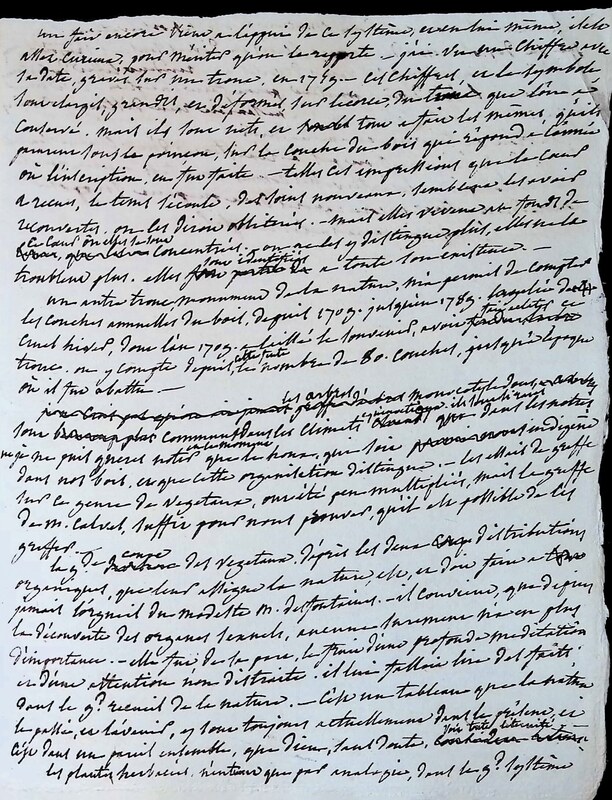 un fait encore vient a l'appui de ce systême, et en lui même, il est
assez curieux, pour mériter qu'on le rapporte – j'ai vu un chiffre avec
la date, gravés sur un tronc, en 1759. – ces chiffres, et le symbole,
sont élargis, grandis, et déformés sur l'écorce du tronc que l'on a
conservé. mais ils sont nets, et tout a fait les mêmes, qu'ils
parurent sous le poinçon, sur la couche du bois qui répond a l'année
où l'inscription, en fut faite – telles les impressions que le cœur
a recues, le tems s'écoule, des soins nouveaux, semblent les avoir
recouvertes, on les diroit oblitérés – mais elles vivent au fonds de
ce cœur où elles se sont concentrées. on ne les y distingue plus, elles ne le
troublent plus. elles sont identifiés a toute son existence. –
un autre tronc monument de la nature, m'a permis de compter
les couches annuelles du bois, depuis 1709. jusqu'en 1789. la gelée de ce
cruel hiver, dont l'an 1709. a laissé le souvenir, avoit ce
tronc. on y compte depuis, le nombre de 80. couches, jusqu'a l'époque
où il fut abattu. –
les arbres monocotyledons,
sont communs dans les climats dans les notres
je ne puis gueres noter que le houx, que soit indigène
dans nos bois, et que cette organisation distingue – les essais de greffe
sur ce genre de vegetaux, ont été peu multipliés, mais la greffe
de m. Calvel, suffit pour nous prouver, qu'il est possible de les
greffer. –
la gde coupe des vegetaux, d'après les deux distributions
organiques, que leur assigne la nature, est, et doit faire a
jamais l'orgueil du modeste m. desfontaines – il convient, que depuis
la découverte des organes sexuels, aucune surement n'a eu plus
d'importance. – elle fut de sa part, le fruit d'une profonde meditation
et d'une attention non distraite. il lui falloit lire des faits
dans le gd recueil de la nature. – C'est un tableau que la nature
le passé, et l'avenir, y sont toujours actuellement dans le présent, et
c'est dans un pareil ensemble, que dieu, sans doute, voit toute l'éternité –
les plantes herbacées n'entrent que par analogie, dans le gd systême